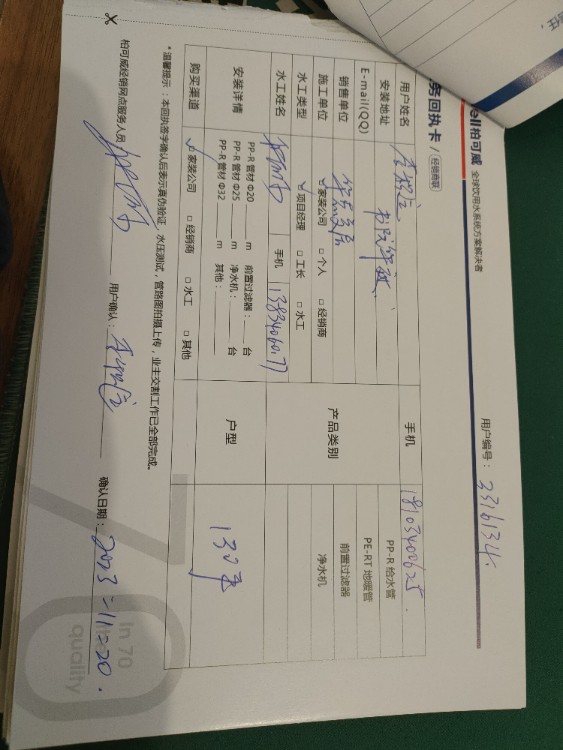 ell柏可威 全球饮用水系统方案解决者
用户编号：2316134
务回执卡 / 经销商联
用户姓名
手机 18103400625
安装地址
E-mail(QQ)
销售单位
产品类别
PP-R 给水管
PE-RT 地暖管
前置过滤器
净水机
施工单位 ☑家装公司 □ 个人 □ 经销商
水工类型 ☑项目经理 □ 工长 □ 水工
水工姓名
手机
安装详情
PP-R 管材 Φ20 m 前置过滤器： 台
PP-R 管材 Φ25 m 净水机： 台
PP-R 管材 Φ32 m 其他：
户型 130平
购买渠道 ☑家装公司 □ 经销商 □ 水工 □ 其他
*温馨提示：本回执签字确认后表示真伪验证，水压测试，管路图拍摄上传，业主交割工作已全部完成。
柏可威经销网点服务人员
用户确认：
确认日期：2023-11-20.
In 70
quality